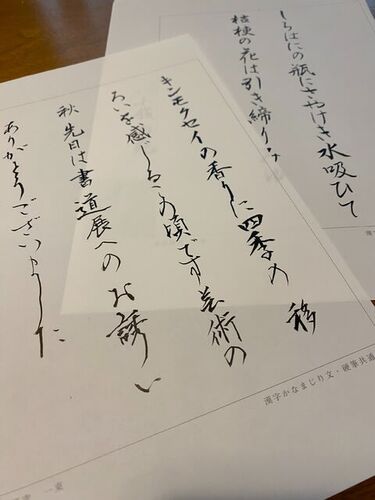 しろはにの瓶にさやけき水吸ひて
桔梗の花は引き締りみ
キンモクセイの香りに四季の移
ろいを感じるこの頃です芸術の
秋先日は書道展へのお誘い
ありがとうございました
漢字かなまじり文・硬筆共通